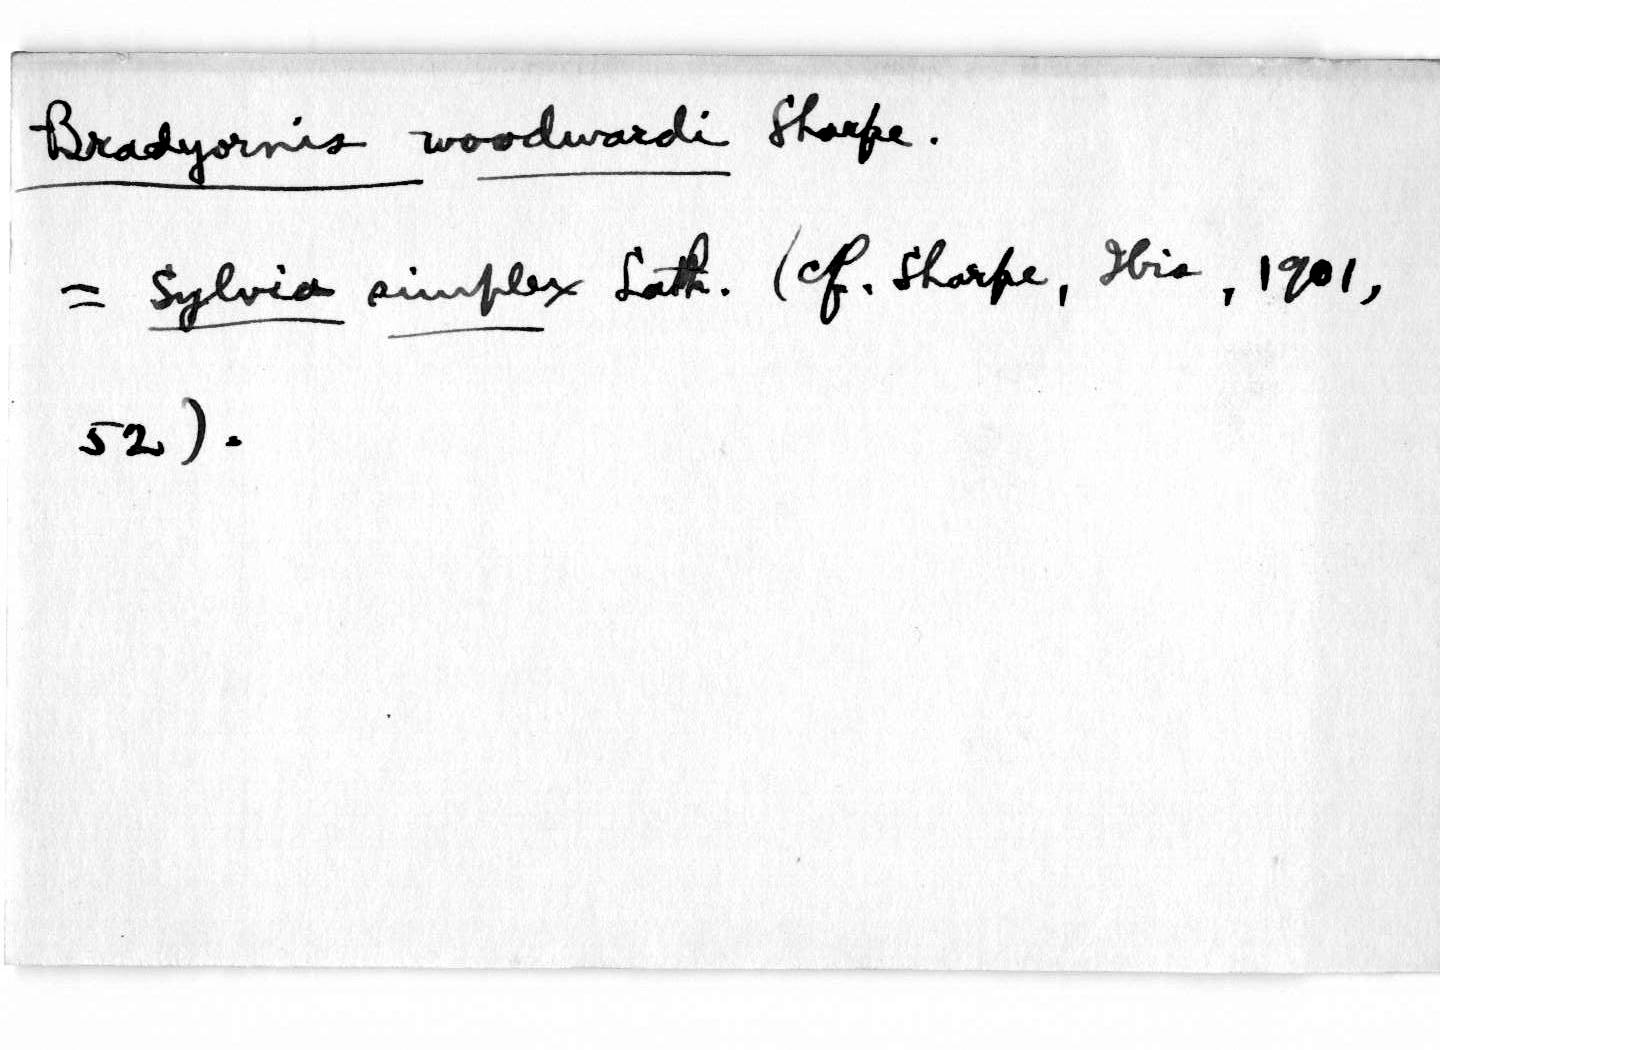 Bradyornis woodwardi Sharpe.
= Sylvia simplex Lath. (cf. Sharpe, Ibis, 1901,
52).